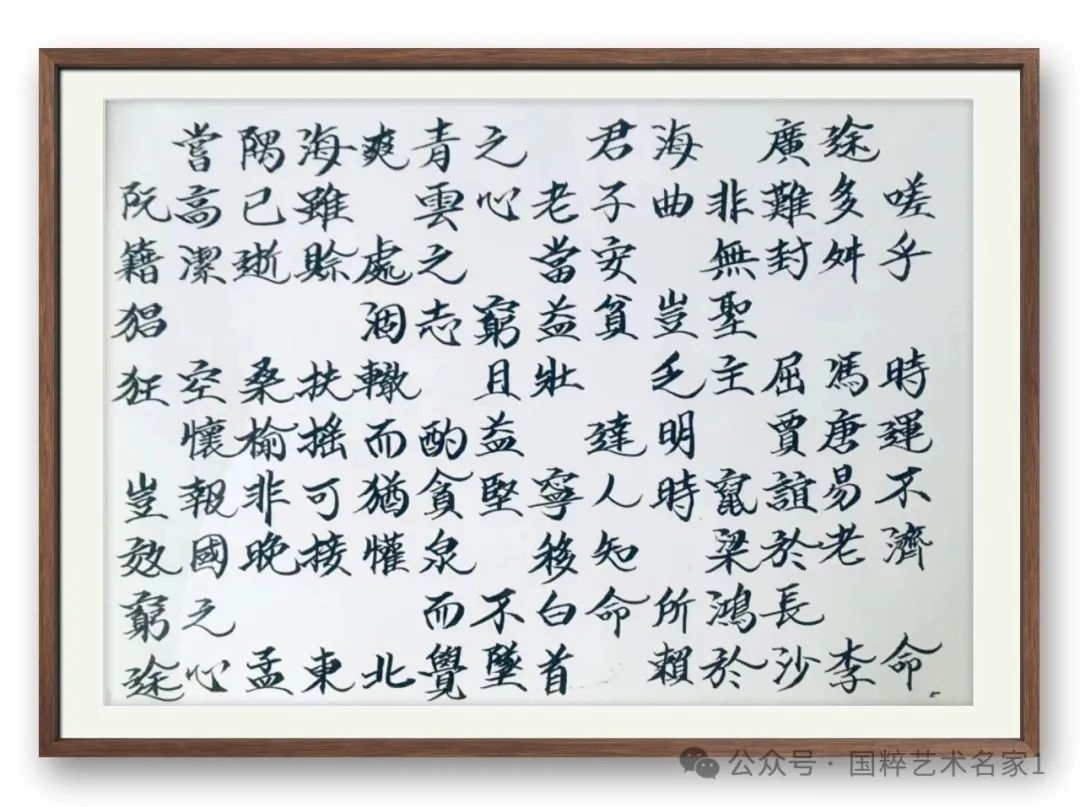 嗟乎 時運不濟 命
途多舛 馮唐易老 李
廣難封 屈賈誼於長沙
非無聖主 竄梁鴻於
海曲 豈乏明時 所賴
君子安貧 達人知命
老當益壯 寧移白首
之心 窮且益堅 不墜
青雲之志 酌貪泉而覺
爽 處涸轍而猶懽 北
海雖賒 扶搖可接 東
隅已逝 桑榆非晚 孟
嘗高潔 空懷報國之心
阮籍猖狂 豈效窮途
公众号 · 国粹艺术名家1